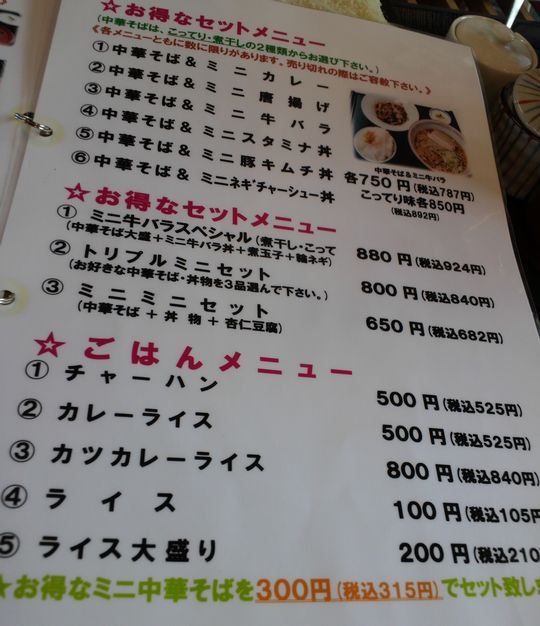 ☆お得なセットメニュー
(中華そばは、こってり・煮干しの2種類からお選び下さい。)
《各メニューともに数に限りがあります。売り切れの際はご容赦下さい。》
①中華そば&ミニカレー
②中華そば&ミニ唐揚げ
③中華そば&ミニ牛バラ
④中華そば&ミニスタミナ丼
⑤中華そば&ミニ豚キムチ丼
⑥中華そば&ミニネギチャーシュー丼
中華そば&ミニ牛バラ
各750円(税込787円)
こってり味各850円
(税込892円)
☆お得なセットメニュー
① ミニ牛バラスペシャル(煮干し・こって
(中華そば大盛+ミニ牛バラ丼+煮玉子+輪ネギ)
880円(税込924円)
② トリプルミニセット
(お好きな中華そば・丼物を3品選んで下さい。)
800円(税込840円)
③ ミニミニセット
(中華そば + 丼物 + 杏仁豆腐)
650円(税込682円)
☆ごはんメニュー
① チャーハン 500円(税込525円)
② カレーライス 500円(税込525円)
③ カツカレーライス 800円(税込840円)
④ ライス 100円(税込105円
⑤ ライス大盛り 200円(税込210
★お得なミニ中華そばを300円(税込315円)でセット致しま